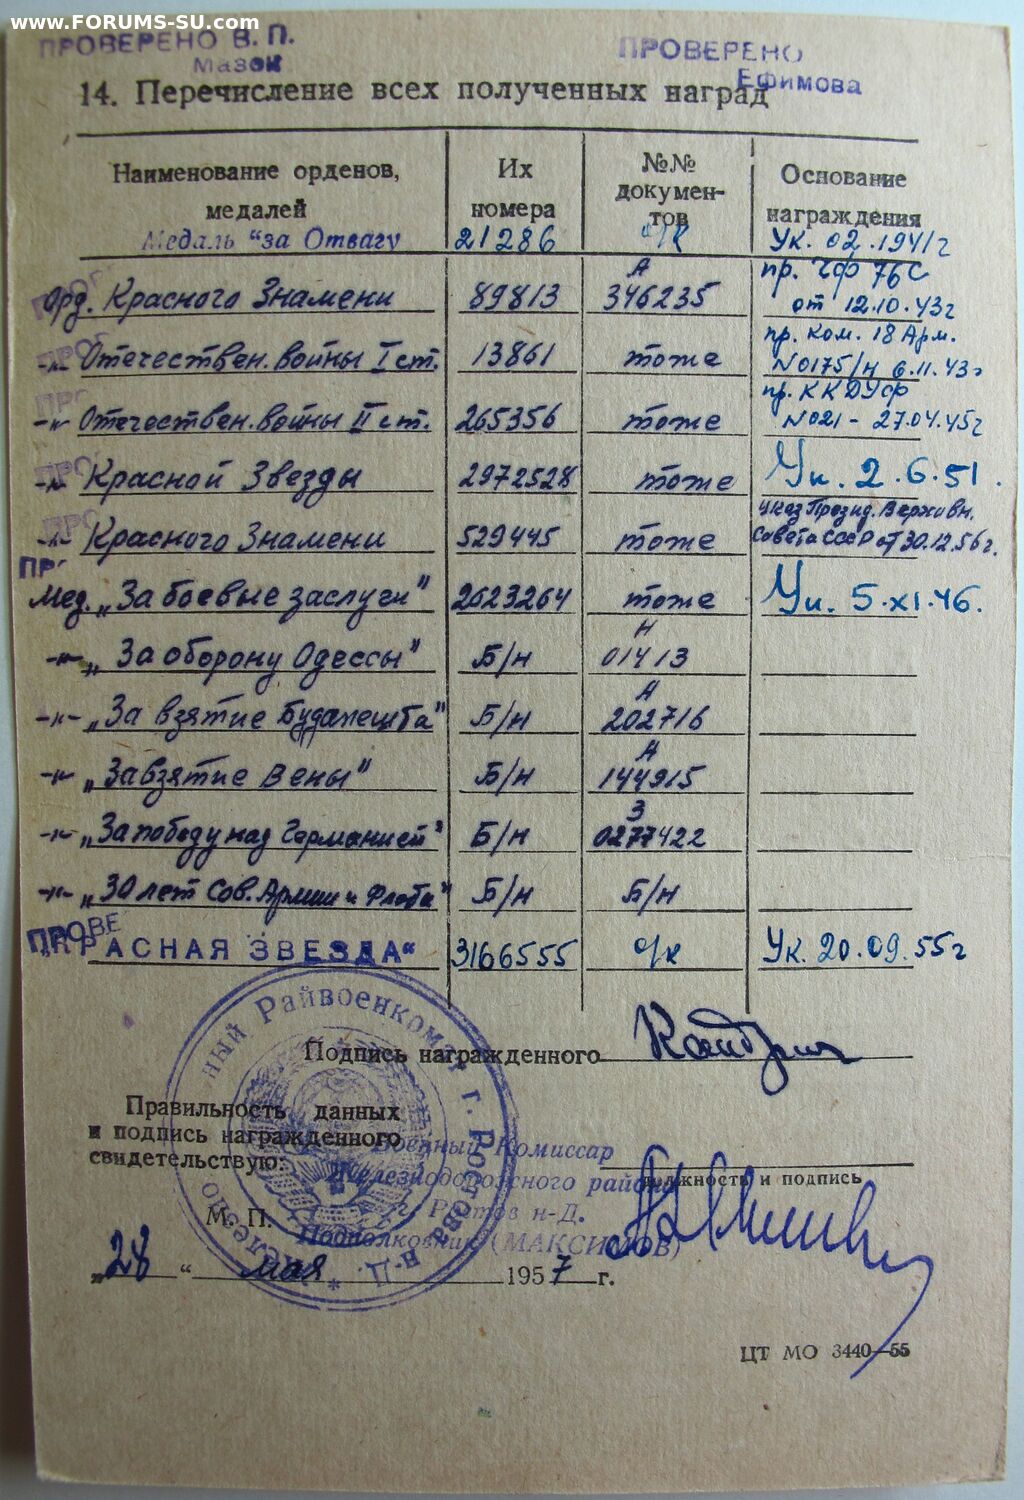 www.FORUMS-SU.com
ПРОВЕРЕНО В. П. Мазок
ПРОВЕРЕНО Ефимова
14. Перечисление всех полученных наград
Наименование орденов, медалей | Их номера | №№ документов | Основание награждения
Медаль "за Отвагу | 21286 | о/к | Ук. 02.1941г
Орд. Красного Знамени | 89813 | А 346235 | пр. ЧФ 76С от 12.10.43г
-"- Отечествен. войны I ст. | 13861 | тоже | пр. Ком. 18 Арм. N0175/н 6.11.43г
-"- Отечествен. войны II ст. | 265356 | тоже | пр. ККДУФ N021 - 27.04.45г
-"- Красной Звезды | 2972528 | тоже | Ук. 2.6.51.
-"- Красного Знамени | 529445 | тоже | указ Презид. Верховн. Совета СССР от 30.12.56г.
Мед. „За боевые заслуги" | 2623264 | тоже | Ук. 5.XI.46.
-"- „За оборону Одессы" | Б/н | Н 01413
-"- „За взятие Будапешта" | Б/н | А 202716
-"- „За взятие Вены" | Б/н | А 144915
-"- „За победу над Германией" | Б/н | З 0277422
-"- „30 лет Сов. Армии и Флота" | Б/н | Б/н
ПРОВЕ
„КРАСНАЯ ЗВЕЗДА" | 3166555 | о/к | Ук. 20.09.55г
Подпись награжденного
Правильность данных
и подпись награжденного
свидетельствую:
Военный Комиссар
Железнодорожного района
г. Ростов н-Д.
Подполковник (МАКСИМОВ)
должность и подпись
М. П.
Райвоенкомат г. Ростова н-Д.
„28" мая 1957 г.
ЦТ МО 3440—55